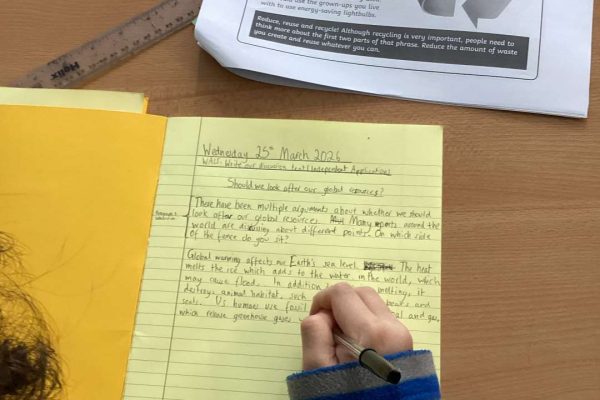 use the grown-ups you live
with to use energy-saving lightbulbs.
Reduce, reuse and recycle! Although recycling is very important, people need to
think more about the first two parts of that phrase. Reduce the amount of waste
you create and reuse whatever you can.
Helix
Wednesday 25th March 2026
WALT: Write our discussion text (Independent Application)
Should we look after our global resources?
There have been multiple arguments about whether we should
look after our global resources. Many around the
world are about different points. On which side
of the fence do you sit?
Global warming affects our Earth's sea level. The heat
melts the ice which adds to the water in the world, which
may cause floods. In addition melting, it
destroys animal habitat, such and
seals. Us humans use fossil and gas,
which release greenhouse gases